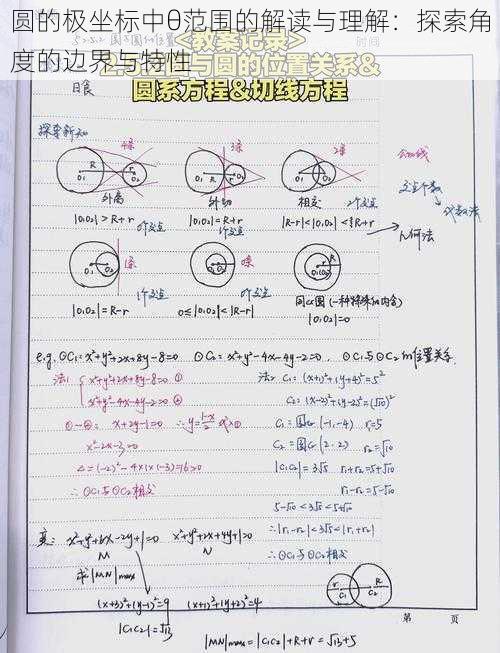 圆的极坐标中θ范围的解读与理解：探索角
度的边界与特性
<教案记录>
2.5.2圆与圆的位置关系&
圆系方程&切线方程
时间
日食
探索新知
4条
3条
2条
公切线
R
r
O₁
O₂
外离
外切
相交
|O₁O₂|>R+r
0个交点
|O₁O₂|=R+r
1个交点
|R-r|<|O₁O₂|<R+r
2个交点
交点个数
代数法
几何法
1条
0条
1个交点
0个交点
同心圆(一种特殊的内含)
|O₁O₂|=R-r
0≤|O₁O₂|<|R-r|
|O₁O₂|=0
e.g. ⊙C₁:x²+y²+2x+8y-8=0 ⊙C₂:x²+y²-4x-4y-2=0. ⊙C₁与⊙C₂的位置关系
法1 { x²+y²+2x+8y-8=0 ①
x²+y²-4x-4y-2=0 ②
①-②: x+2y-1=0 ∴y=(1-x)/2 代入①
x²-2x-3=0
Δ=(-2)²-4×1×(-3)=16>0
∴⊙C₁与⊙C₂相交
法2 C₁:(x+1)²+(y+4)²=5²
C₂:(x-2)²+(y-2)²=(√10)²
C₁=圆心(-1,-4) r₁=5
C₂=圆心(2,2) r₂=√10
|C₁C₂|=3√5 r₁+r₂=5+√10
r₁-r₂=5-√10
5-√10<3√5<5+√10
∴|r₁-r₂|<3√5<|r₁+r₂|
∴⊙C₁与⊙C₂相交
变: x²+y²+6x-2y+1=0 x²+y²+2x+4y+1=0
M
N
求|MN|max
(x+3)²+(y-1)²=9 (x+1)²+(y+2)²=4
|C₁C₂|=√13
r
R
C₁
C₂
|MN|max=|C₁C₂|+R+r=√13+5
第 页